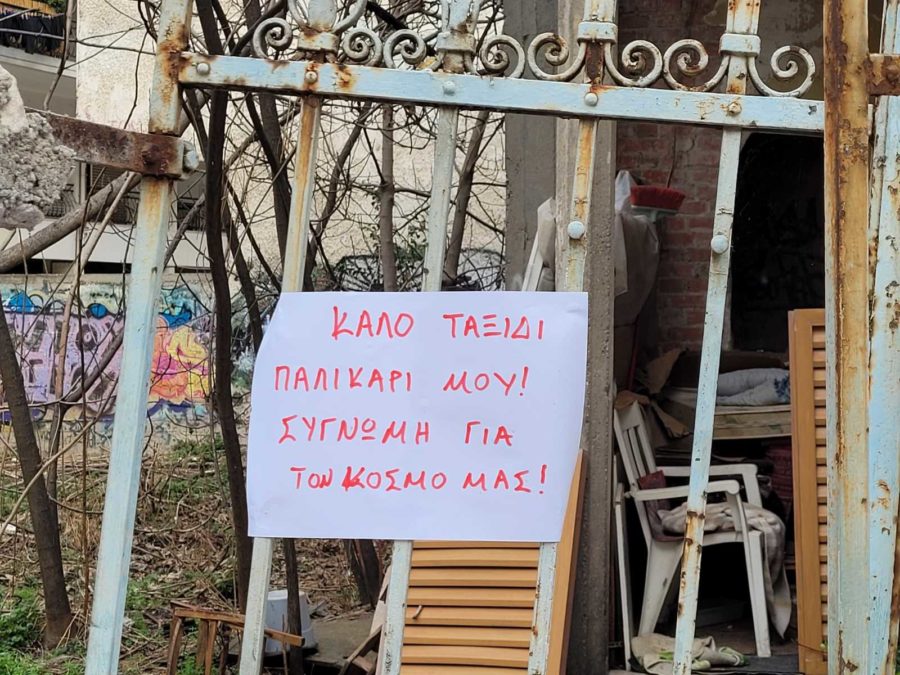 ΚΑΛΟ ΤΑΞΙΔΙ
ΠΑΛΙΚΑΡΙ ΜΟΥ!
ΣΥΓΝΩΜΗ ΓΙΑ
ΤΟΝ ΚΟΣΜΟ ΜΑΣ!